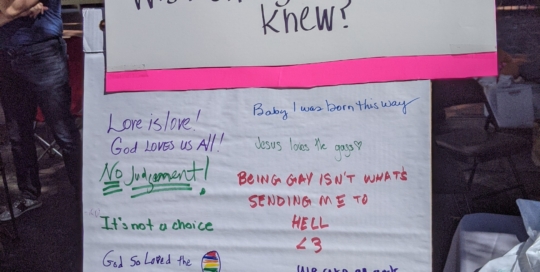 knew?
Love is love!
God Loves us All!
No Judgement!
It's not a choice
God So Loved the
Baby I was born this way
Jesus loves the gays
BEING GAY ISN'T WHAT'S
SENDING ME TO
HELL
<3